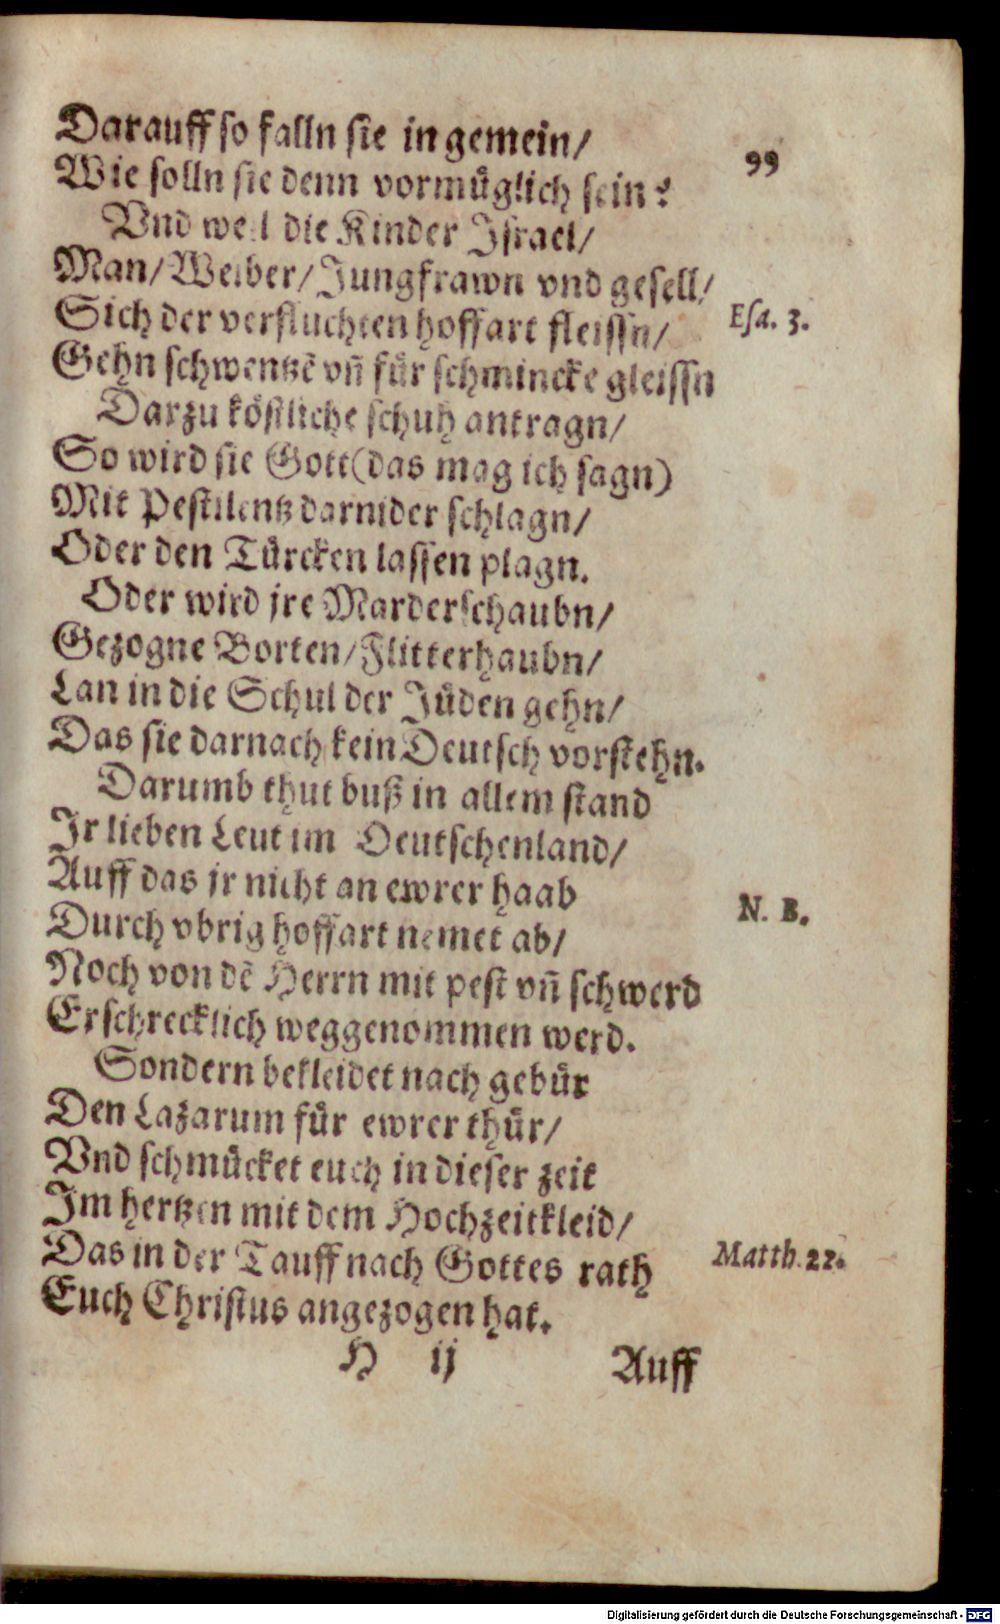 99
Darauff so falln sie in gemein/
Wie solln sie denn vormüglich sein?
Vnd weil die Kinder Israel/
Man/ Weiber/ Jungfrawn vnd gesell/
Sich der verfluchten hoffart fleissn/
Esa. 3.
Gehn schwentzē vn̄ für schmincke gleissn
Darzu köstliche schuh antragn/
So wird sie Gott (das mag ich sagn)
Mit Pestilentz darnider schlagn/
Oder den Türcken lassen plagn.
Oder wird jre Marderschaubn/
Gezogne Borten/ Flitterhaubn/
Lan in die Schul der Jüden gehn/
Das sie darnach kein Deutsch vorstehn.
Darumb thut buß in allem stand
Jr lieben Leut im Deutschenland/
Auff das jr nicht an ewrer haab
N. B.
Durch vbrig hoffart nemet ab/
Noch von dē Herrn mit pest vn̄ schwerd
Erschrecklich weggenommen werd.
Sondern bekleidet nach gebür
Den Lazarum für ewrer thür/
Vnd schmücket euch in dieser zeit
Im hertzen mit dem Hochzeitkleid/
Das in der Tauff nach Gottes rath
Matth. 22.
Euch Christus angezogen hat.
H ij
Auff
Digitalisierung gefördert durch die Deutsche Forschungsgemeinschaft - DFG